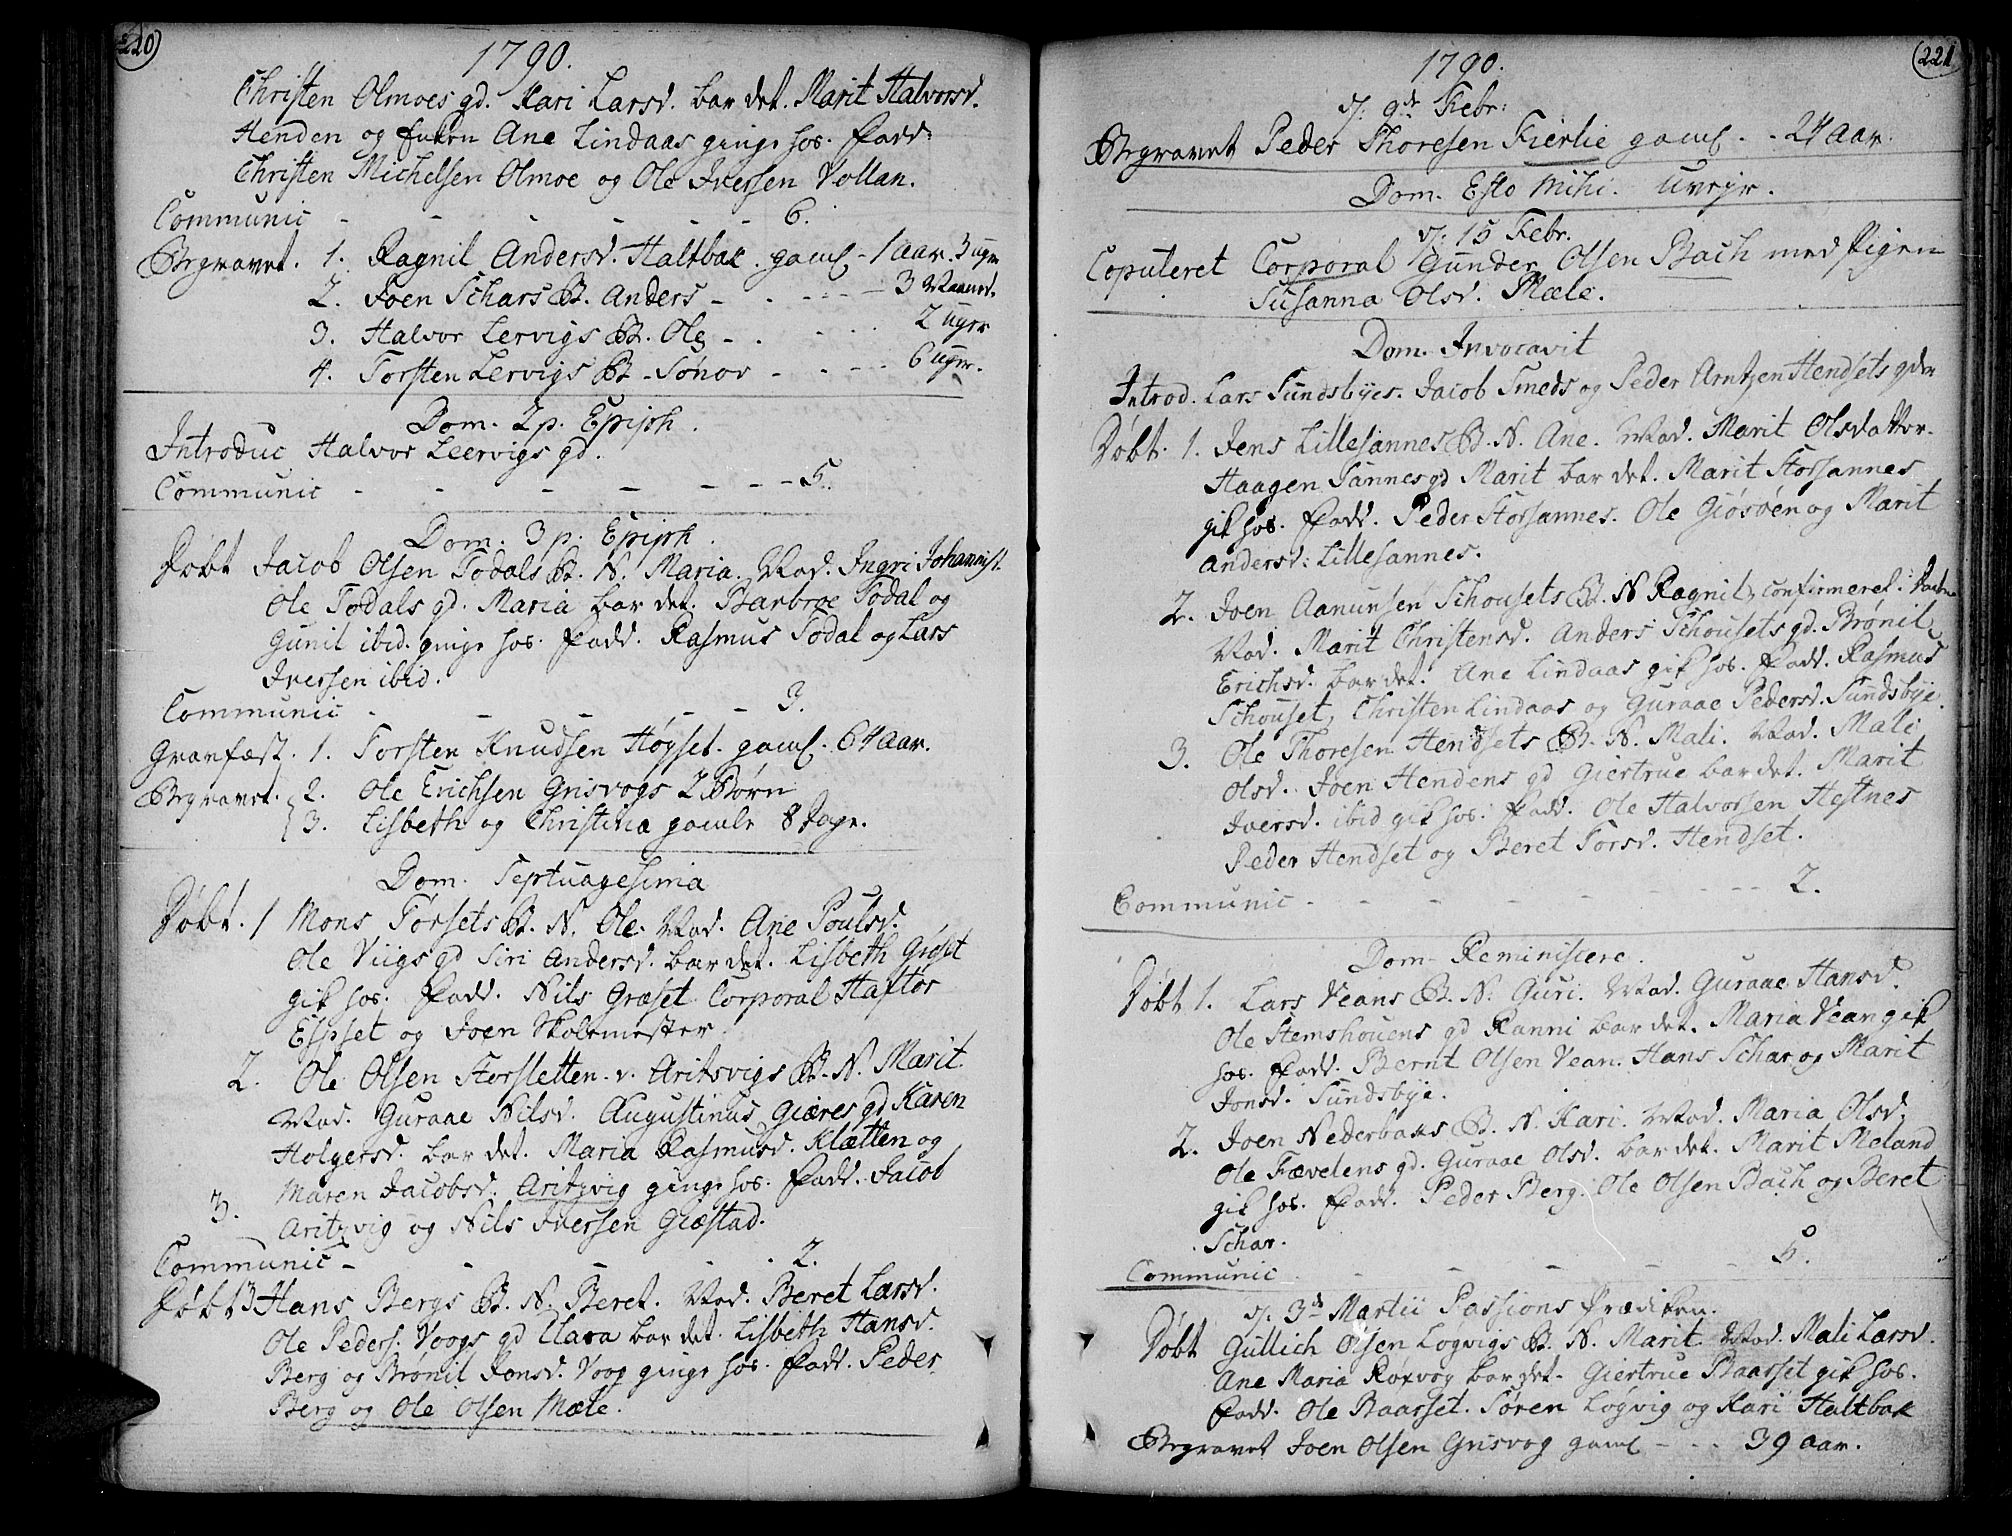 220
1790.
Christen Olmoes gd. Kari Larsd. bar det. Marit Halvorsd.
Henden og Enken Ane Lindaas ginge hos. Fadd:
Christen Michelsen Olmoe og Ole Iversen Vollan.
Communic - - - - - - 6.
Begravet. 1. Ragnil Andersd. Haltbak. gaml - 1 Aar. 3 uger
2. Joen Schars B. Anders - - - - - 3 Maaned.
3. Halvor Lervigs B. Ole - . - - - 2 uger
4. Torsten Lervigs B - Sønov - - - - 6 uger.
Dom. 2 p. Epiph.
Introduc Halvor Leervigs gd.
Communic - - - - - - - 5.
Dom. 3 p. Epiph.
Døbt Jacob Olsen Todals B. N. Maria. Mod. Ingri Johannisd.
Ole Todals gd. Maria bar det. Barbroe Todal og
Gunil ibid. ginge hos. Fadd. Rasmus Todal og Lars
Iversen ibid.
Communic - - - - - 3.
Gravfæst. 1. Torsten Knudsen Høgset. gaml. 64 Aar.
Begravet. 2. Ole Erichsen Grisvogs 2 Børn
3. Lisbeth og Christina gamle 8 Dage.
Dom. Septuagesima
Døbt. 1 Mons Torsets B. N. Ole. Mod. Ane Poulsd.
Ole Viigs gd Siri Andersd. bar det. Lisbeth Giøset
gik hos. Fadd. Nils Græset Corporal Haftor
Espset og Joen Skolemester.
2. Ole Olsen Storsletten v. Aritsvigs B. N. Marit.
Mod. Guraae Nilsd. Augustinus Giæres gd Karen
Holgersd. bar det. Maria Rasmusd. Klætten og
Maren Jacobsd. Aritzvig ginge hos. Fadd. Jacob
3. Aritzvig og Nils Iversen Giæstad.
Communic - - - - - 2.
Døbt 3 Hans Bergs B. N. Beret. Mod. Beret Larsd.
Ole Peders: Voogs gd Clara bar det. Lisbeth Hansd.
Berg og Brønil Jonsd. Voog ginge hos. Fadd. Peder
Berg og Ole Olsen Mæle.
221
1790.
d. 9de Febr:
Begravet Peder Thoresen Fierlie gaml - - 24 Aar.
Dom. Esto Mihi. Uvejr.
d. 15 Febr.
Copuleret Corporal Gunder Olsen Bach med Pigen
Susanna Olsd. Mæle.
Dom. Invocavit
Introd. Lars Sundsbyes. Jacob Smeds og Peder Arntzen Hendsets gder
Døbt. 1. Jens Lillesannes B. N. Ane. Mod. Marit Olsdatter.
Haagen Sannes gd Marit bar det. Marit Storsannes
gik hos. Fadd. Peder Storsannes. Ole Giøsøen og Marit
Andersd: Lillesannes.
2. Joen Aanunsen Schousets B. N Ragnil, confirmeret i
Mod. Marit Christensd. Anders Schousets gd. Brønil
Erichsd. bar det. Ane Lindaas gik hos. Fadd. Rasmus
Schouset, Christen Lindaas og Guraae Pedersd. Sundsbye.
3. Ole Thoresen Hendsets B. N. Mali. Mod. Mali
Olsd. Joen Hendens gd Giertrue bar det. Marit
Iversd. ibid gik hos. Fadd. Ole Halvorsen Hestnes
Peder Hendset og Beret Torsd. Hendset.
Communic - - - - - - 2.
Dom. Reminiscere.
Døbt 1. Lars Veans B. N. Guri. Mod. Guraae Hansd.
Ole Stemshouens gd Ranni bar det. Maria Vean gik
hos. Fadd. Bernt Olsen Vean. Hans Schar og Marit
Jonsd. Sundsbye.
2. Joen Nederbaks B. N. Kari. Mod. Maria Olsd.
Ole Fævelens gd. Guraae Olsd. bar det. Marit Meland
gik hos. Fadd. Peder Berg. Ole Olsen Bach og Beret
Schar.
Communic - - - - - 5.
d. 3de Martii Passions Prædiken.
Døbt Gullich Olsen Løgvigs B. N. Marit. Mod. Mali Larsd.
Ane Maria Røxvog bar det. Giertrue Baarset gik hos.
Fadd. Ole Baarset. Søren Løgvig og Kari Haltbak
Begravet Joen Olsen Grisvog gaml - - - 39 Aar.